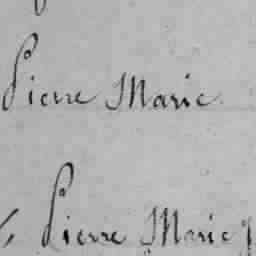 Pierre Marie
Pierre Marie